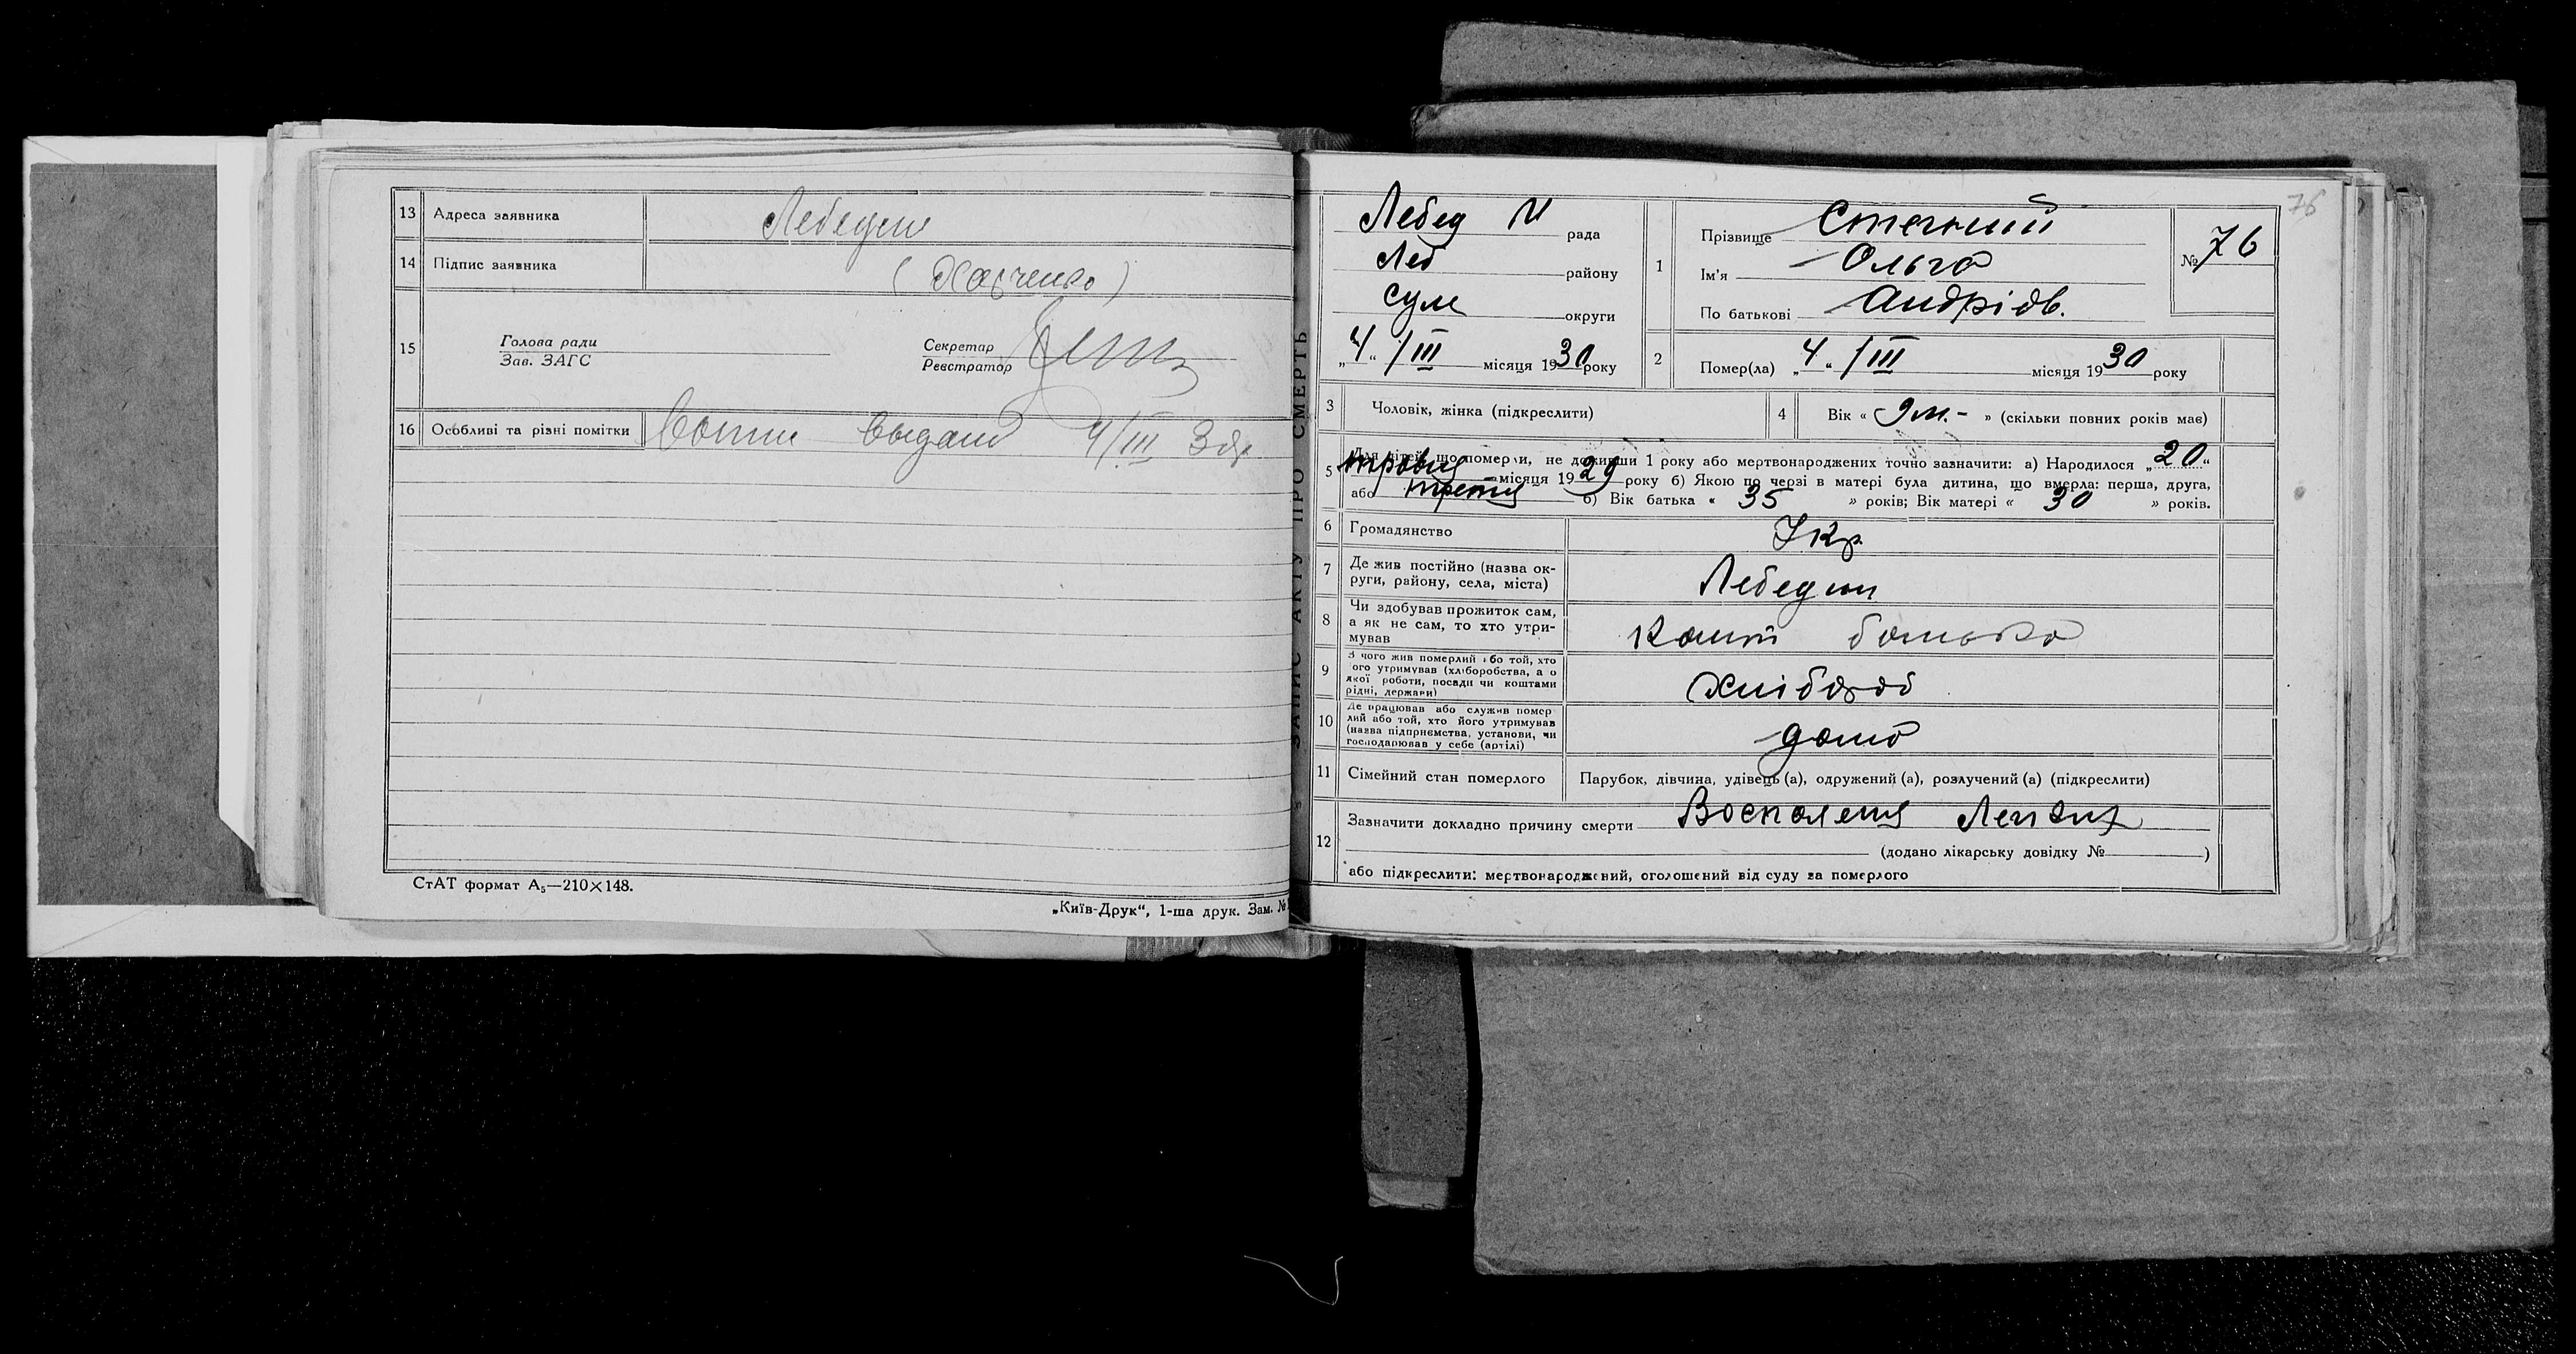 13 Адреса заявника Лебедин
14 Підпис заявника (Харченко)
15 Голова ради
Зав. ЗАГС
Секретар
Реєстратор
16 Особливі та різні помітки выдан 4/III 30р
СтАТ формат А₅—210×148.
„Київ-Друк“, 1-ша друк. Зам. №
ЗАПИС АКТУ ПРО СМЕРТЬ
76
Лебед М рада
Лед району
Сум округи
„4“ /III місяця 1930 року
1 Прізвище
Ім'я Ольга
По батькові Андріїв.
№ 76
2 Помер(ла) „4“ /III місяця 1930 року
3 Чоловік, жінка (підкреслити)
4 Вік « 9м.- » (скільки повних років має)
5 Для дітей, що померли, не доживши 1 року або мертвонароджених точно зазначити: а) Народилося „20“
травня місяця 1929 року б) Якою по черзі в матері була дитина, що вмерла: перша, друга,
або третя б) Вік батька « 35 » років; Вік матері « 30 » років.
6 Громадянство Укр
7 Де жив постійно (назва ок-
руги, району, села, міста) Лебедин
8 Чи здобував прожиток сам,
а як не сам, то хто утри-
мував Кошт батька
9 З чого жив померлий або той, хто
його утримував (хліборобства, а о
якої роботи, посади чи коштами
рідні, держави) Хлібороб
10 Де працював або служив помер
лий або той, хто його утримував
(назва підприємства, установи, чи
господарював у себе (артілі) дома
11 Сімейний стан померлого Парубок, дівчина, удівець (а), одружений (а), розлучений (а) (підкреслити)
12 Зазначити докладно причину смерти Воспаления Легких
(додано лікарську довідку № )
або підкреслити: мертвонароджений, оголошений від суду за померлого